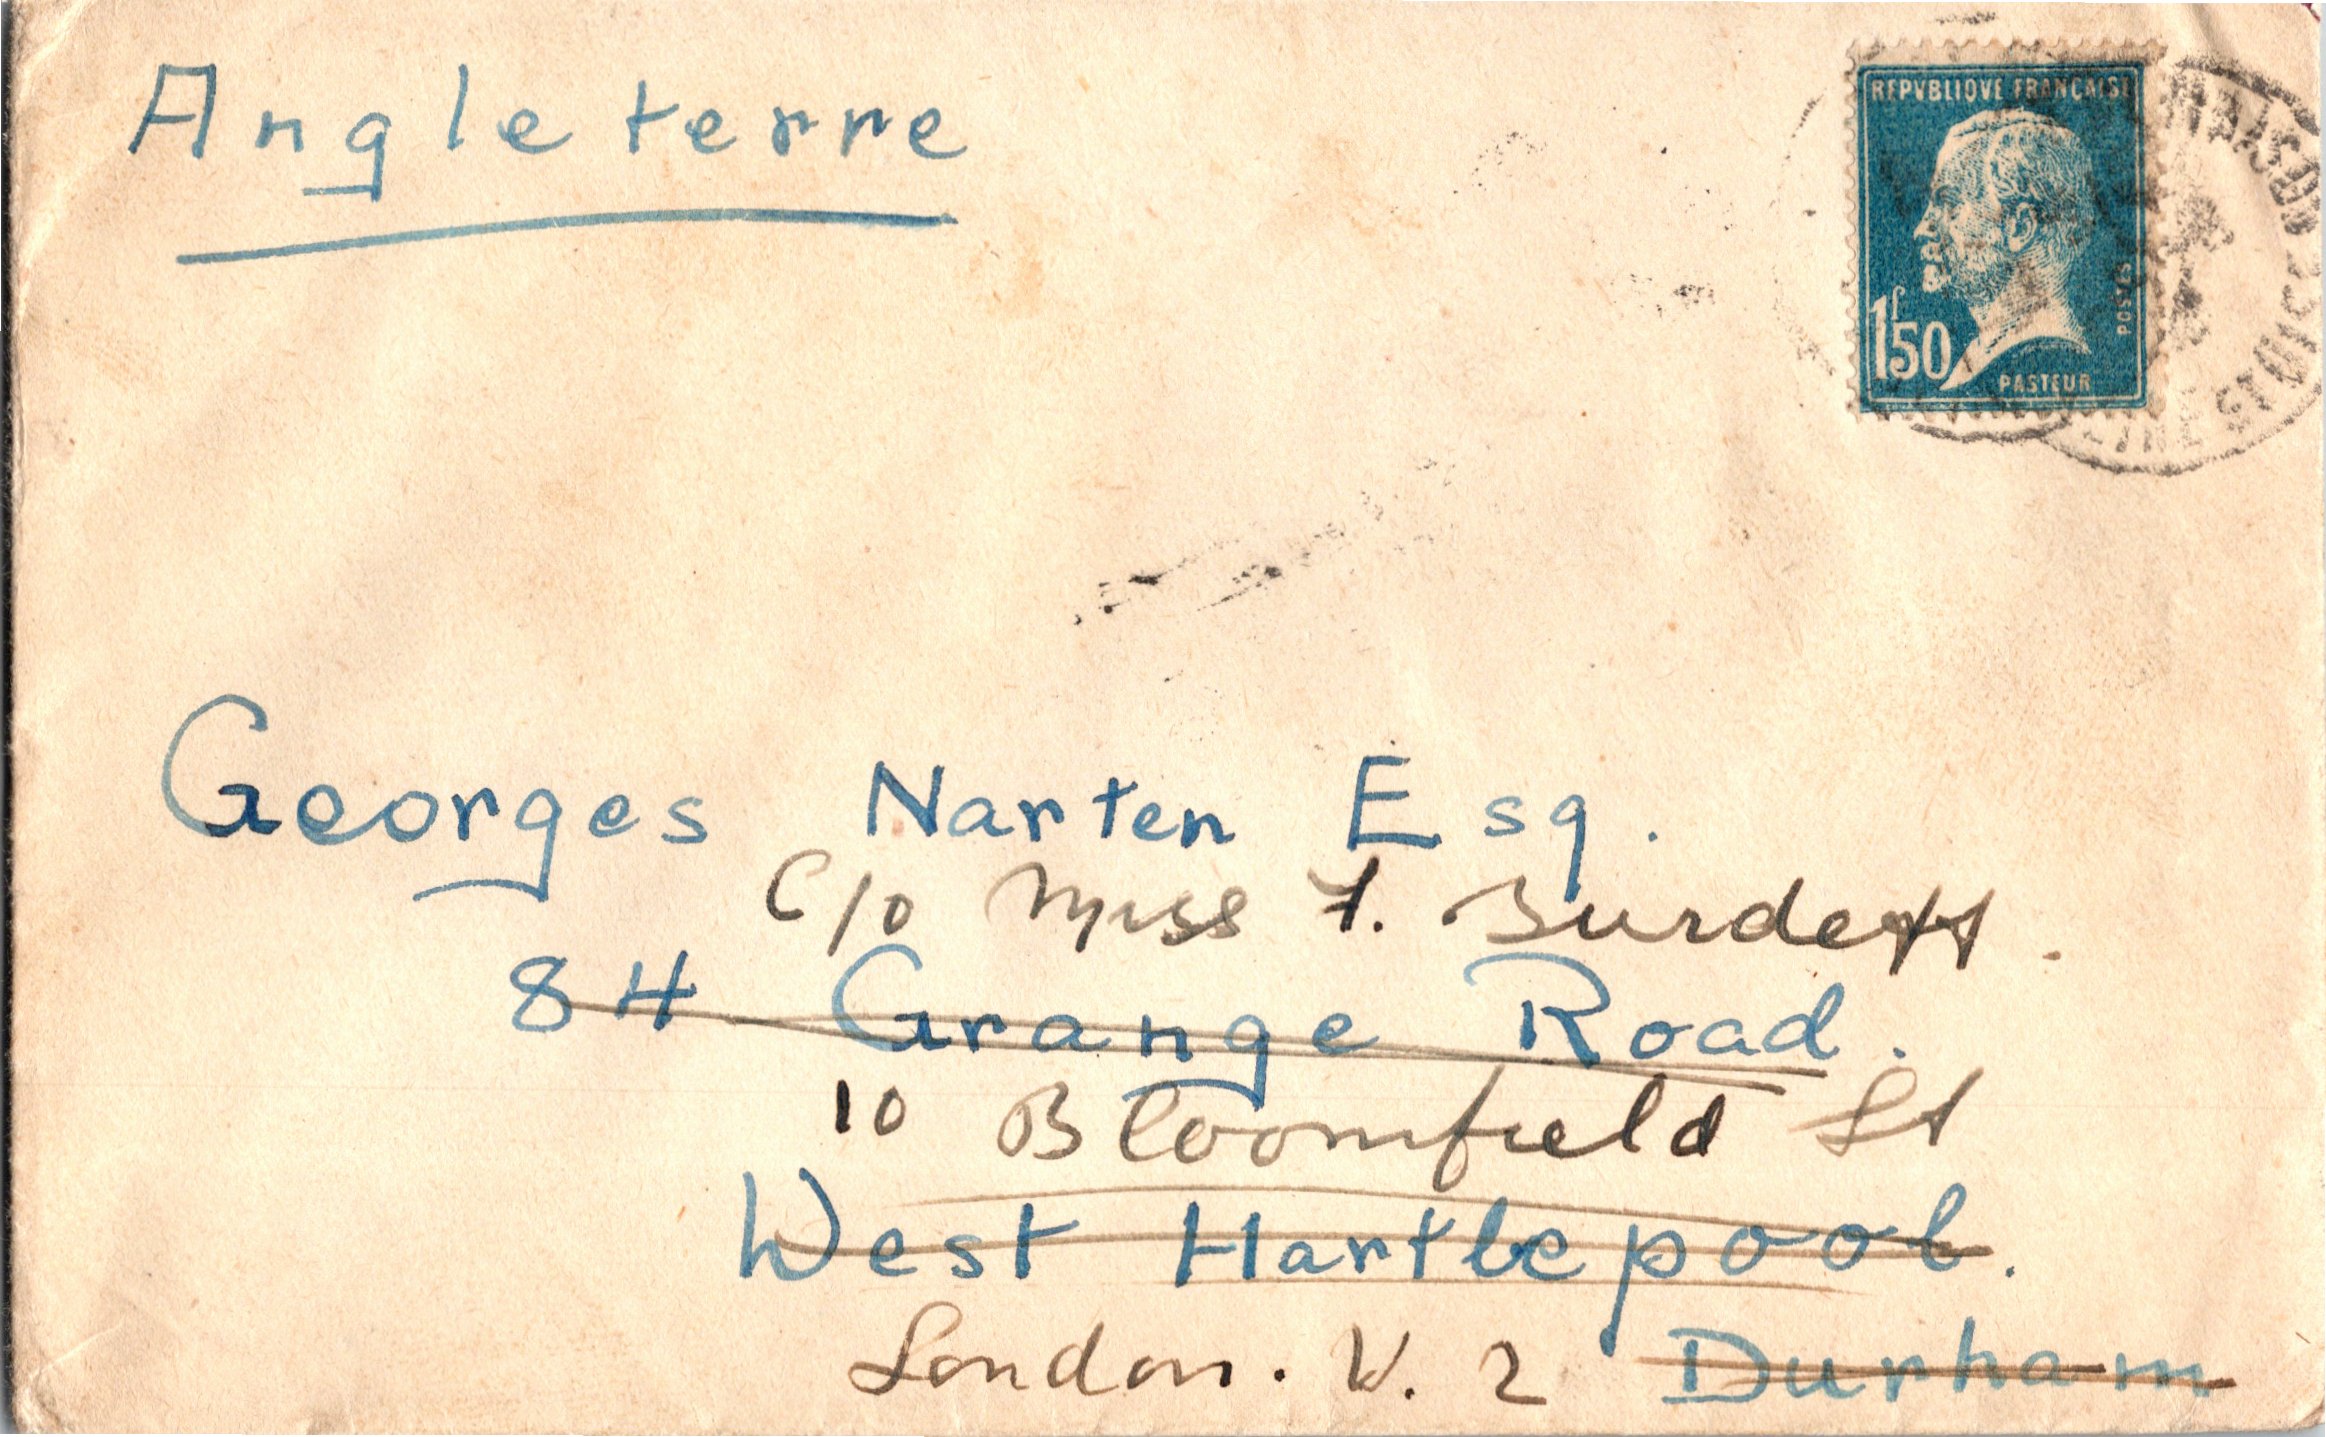 Angleterre
REPVBLIQVE FRANÇAISE
POSTES
1f50
PASTEUR
MAISON
ST LOUIS
Georges Narten Esq.
C/o Miss F. Burdett.
84 Grange Road.
10 Bloomfield St
West Hartlepool.
London. W. 2 Durham